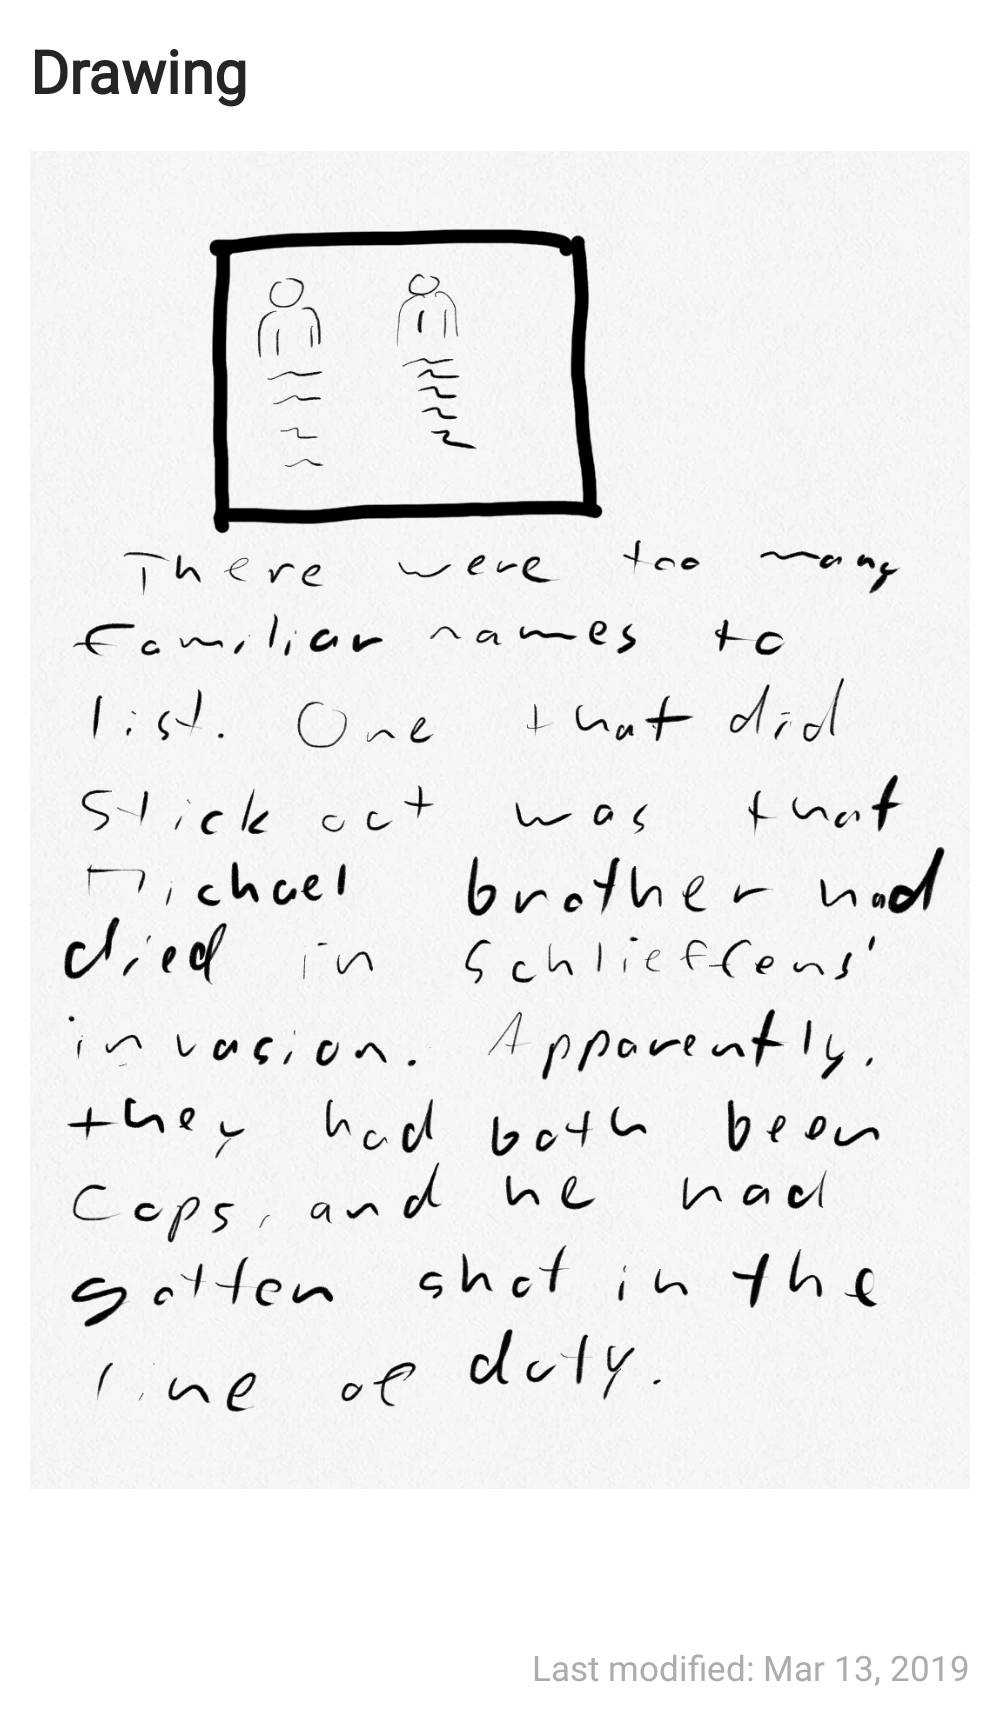 Drawing
There were too many
familiar names to
list. One that did
stick out was that
Michael brother had
died in Schlieffens'
invasion. Apparently,
they had both been
cops, and he had
gotten shot in the
line of duty.
Last modified: Mar 13, 2019